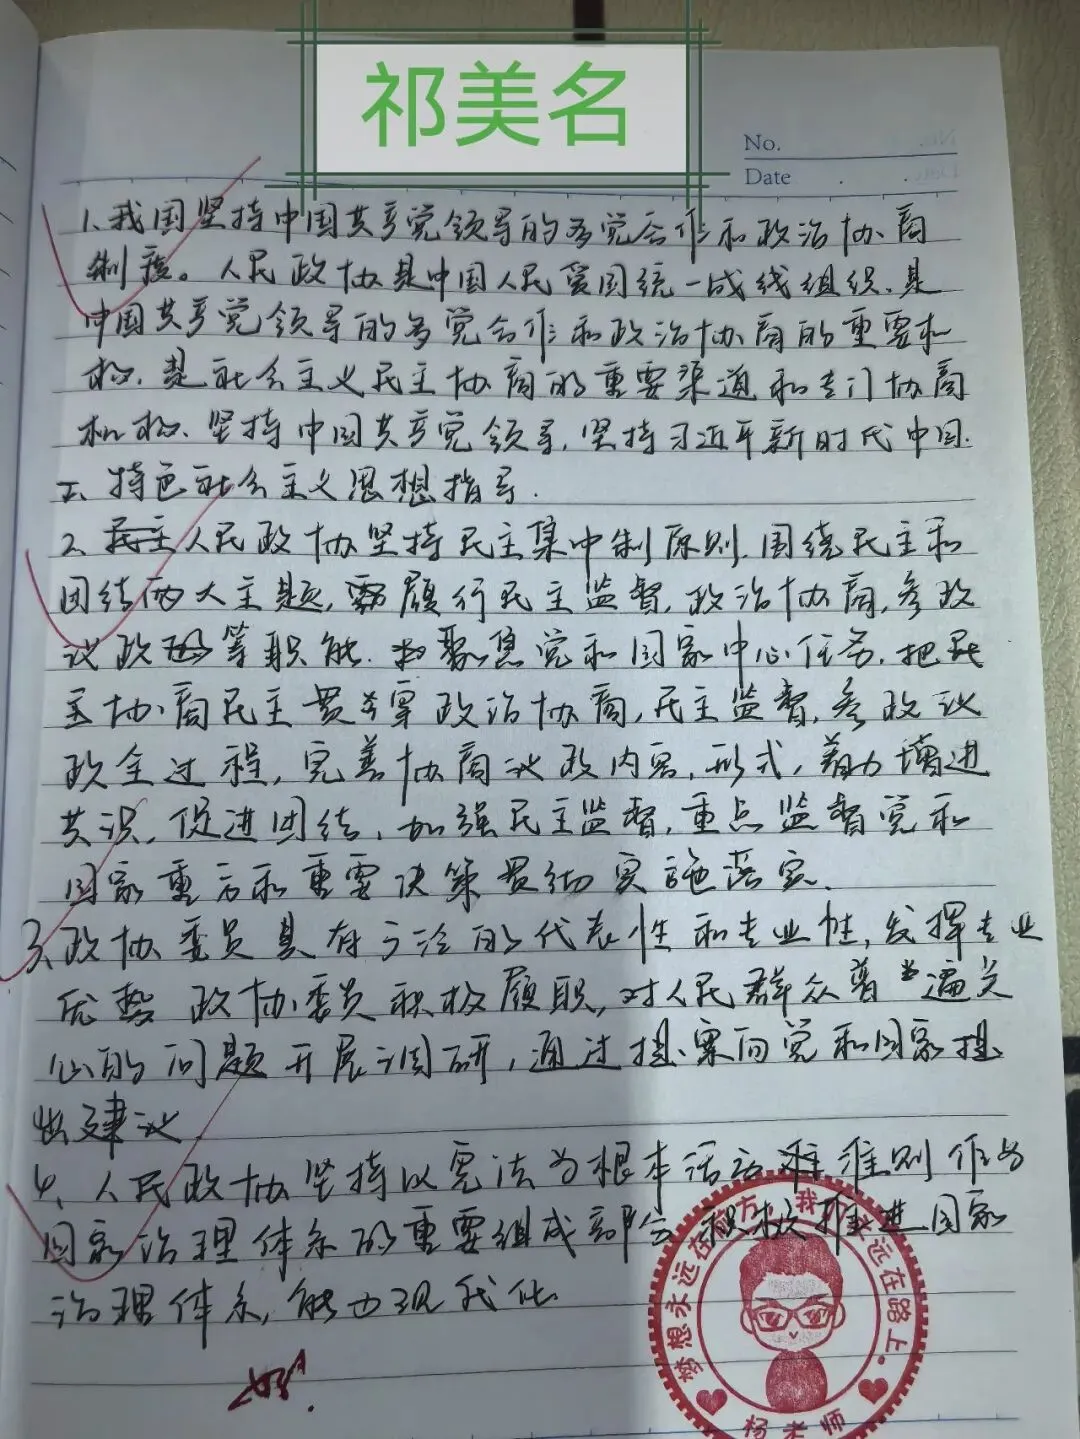 祁美名
No.
Date
1、我国坚持中国共产党领导的多党合作和政治协商
制度。人民政协是中国人民爱国统一战线组织、是
中国共产党领导的多党合作和政治协商的重要机
构、是社会主义民主协商的重要渠道和专门协商
机构、坚持中国共产党领导，坚持习近平新时代中国
特色社会主义思想指导.
2、人民政协坚持民主集中制原则，围绕民主和
团结两大主题，履行民主监督，政治协商，参政
议政等职能，聚焦党和国家中心任务，把
协商民主贯穿政治协商，民主监督，参政议
政全过程，完善协商议政内容，形式，着力增进
共识，促进团结，加强民主监督，重点监督党和
国家重方和重要决策贯彻实施落实.
3、政协委员具有广泛的代表性和专业性，发挥专业
优势 政协委员积极履职，对人民群众普遍关
心的问题开展调研，通过提案向党和国家提
出建议
4、人民政协坚持以宪法为根本活动准则作为
国家治理体系的重要组成部分 积极推进国家
治理体系，能力现代化
好.
梦想永远在前方，我们永远在路上.
杨老师